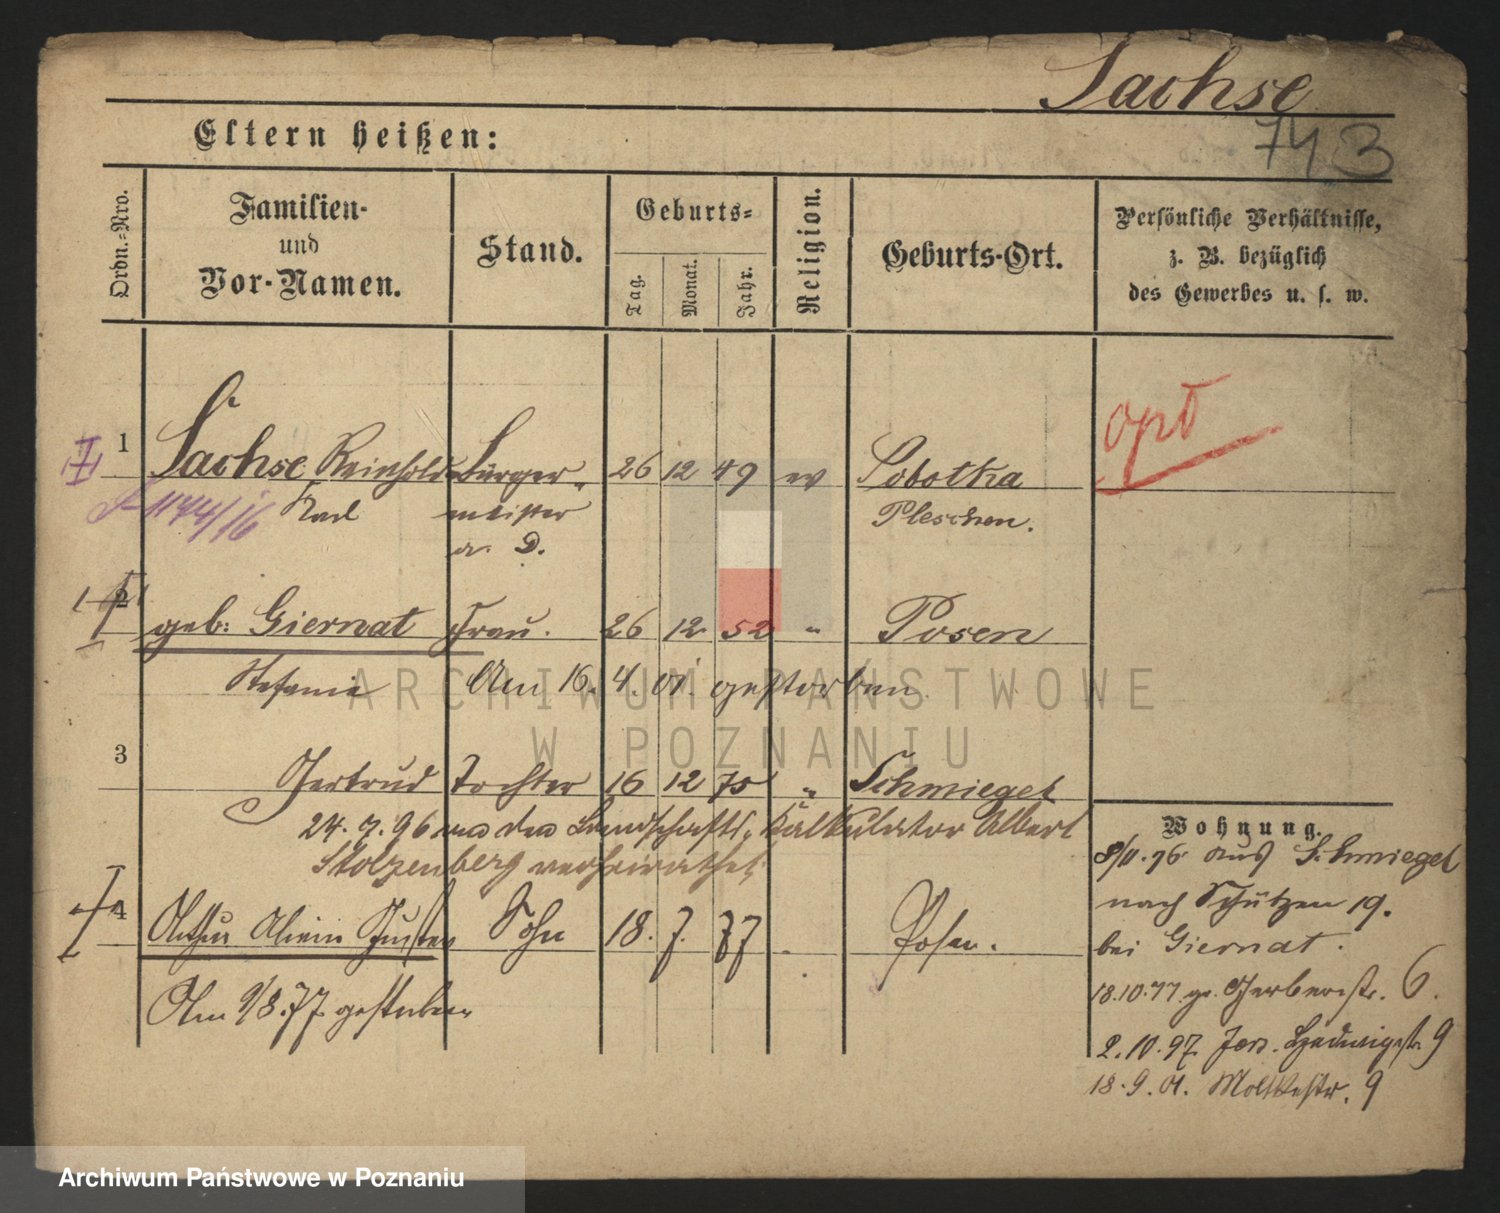 Sachse
743
Eltern heißen:
Ordn.-Nro.
Familien-
und
Vor-Namen.
Stand.
Geburts-
Tag.
Monat.
Jahr.
Religion.
Geburts-Ort.
Persönliche Verhältnisse,
z. B. bezüglich
des Gewerbes u. s. w.
1 Sachse Reinhold Bürger- 26 12 49 ev Sobotka
Karl meister Pleschen.
a. D.
1174/16
2 geb: Giernat Frau. 26 12 52 " Posen
Stefanie Am 16. 4. 01. gestorben
3 Gertrud Tochter 16 12 75 " Schmiegel
24. 7. 96 an den Landschafts-Kalkulator Albert
Stolzenberg verheirathet
4 Arthur Sohn 18. 7. 77 Posen.
Am 9/8.77 gestorben
Wohnung.
8/11.76 aus Schmiegel
nach Schützen 19.
bei Giernat.
18.10.77 gr. Gerberstr. 6.
2.10.97 Hedwigstr 9
18.9.01. Moltkestr. 9
ARCHIWUM PAŃSTWOWE
W POZNANIU
Archiwum Państwowe w Poznaniu